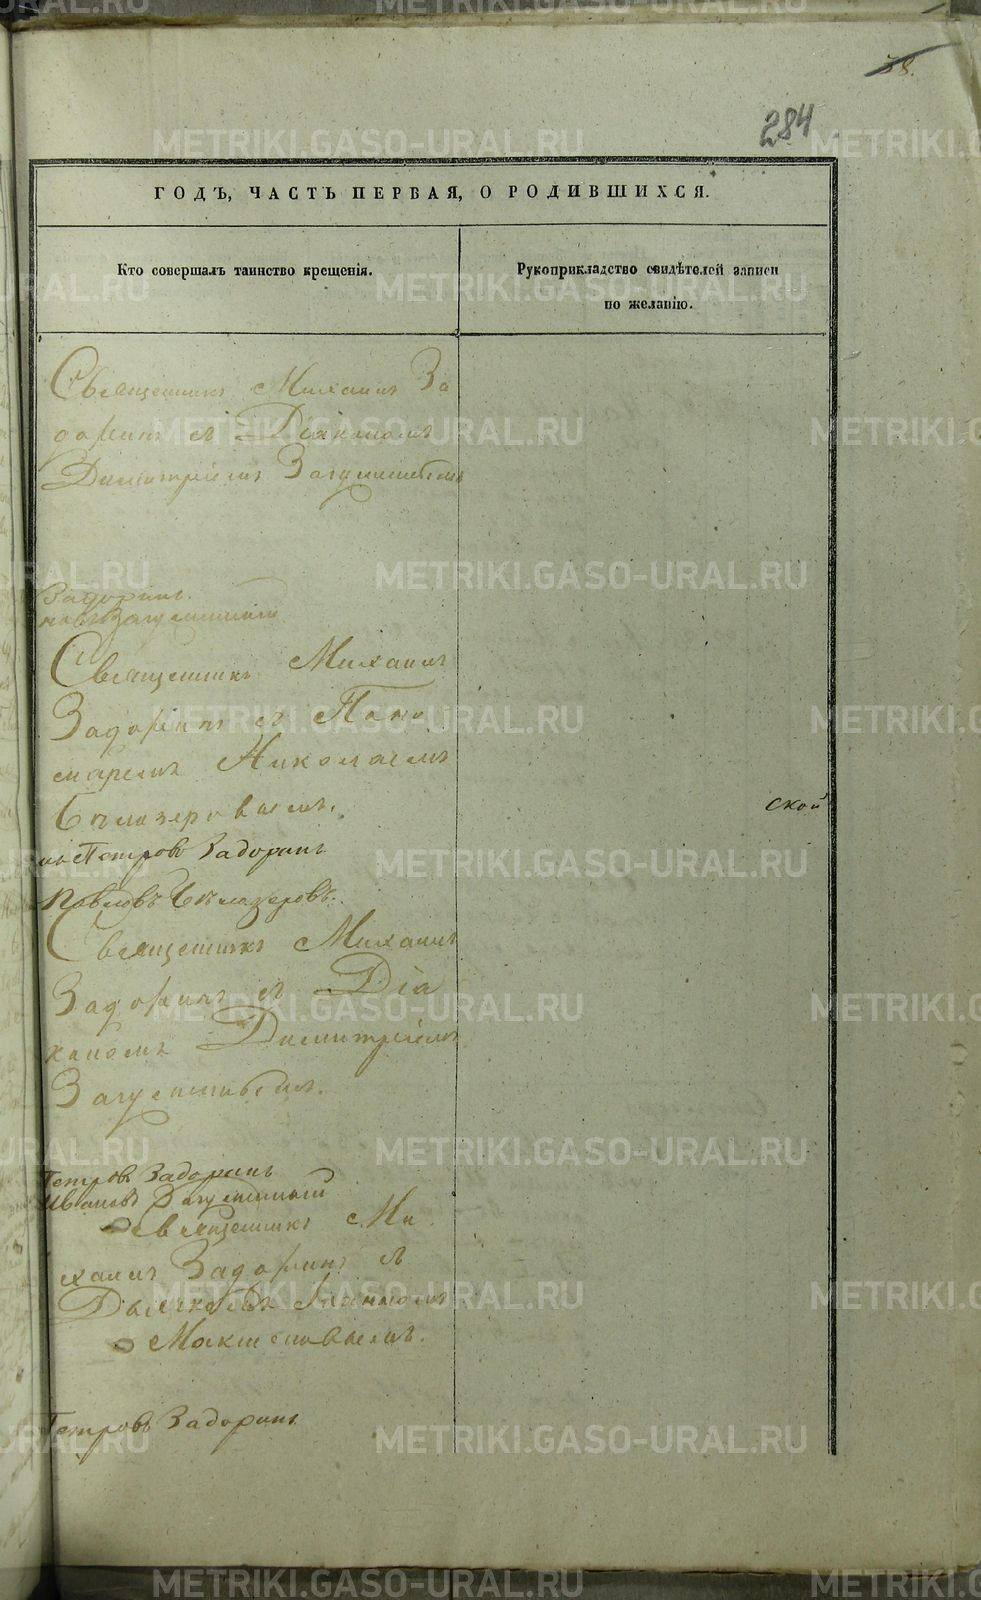 38.
284
ГОДЪ, ЧАСТЬ ПЕРВАЯ, О РОДИВШИХСЯ.
Кто совершалъ таинство крещенія.
Рукоприкладство свидѣтелей записи
по желанію.
Священникъ Михаилъ За
доринъ съ Діакономъ
Димитріемъ Загуменныемъ
Задоринъ.
новъ Загуменный
Священникъ Михаилъ
Задоринъ съ Поно
маремъ Николаемъ
Бѣлазеровымъ.
ской
Петровъ Задоринъ
Павловъ Бѣлазеровъ.
Священникъ Михаилъ
Задоринъ съ Діа
кономъ Димитріемъ
Загуменныемъ.
Петровъ Задоринъ
Ивановъ Загуменный
Священникъ Ми
хаилъ Задоринъ съ
Дьячковъ
Максимовымъ.
Петровъ Задоринъ
METRIKI.GASO-URAL.RU